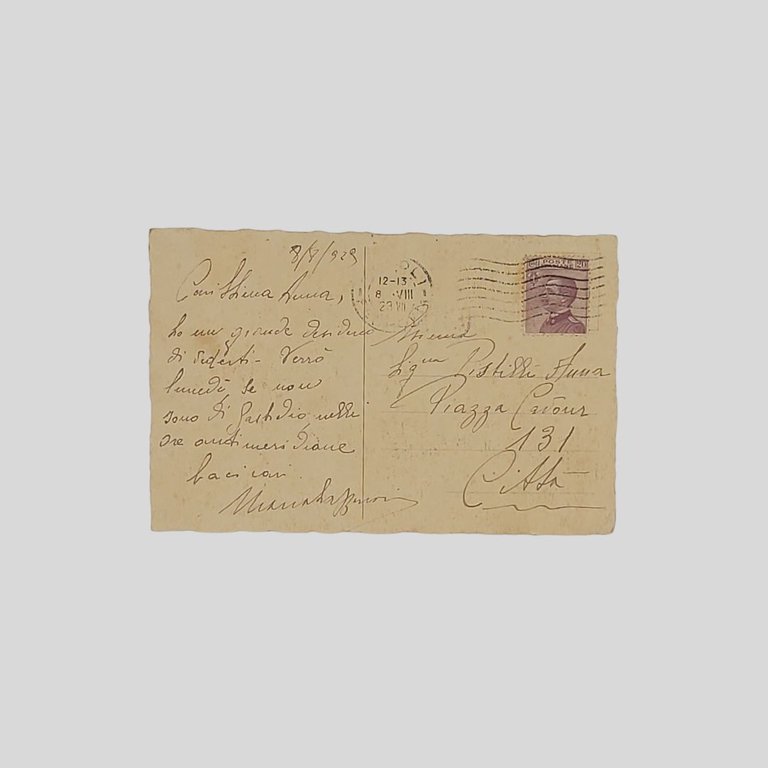 8/8/929
Carissima Anna,
ho un grande desiderio
di vederti - Verrò
lunedì se non
sono di fastidio nelle
ore antimeridiane
baci cari
12-13
8 VIII
POSTE
Pistilli Anna
Piazza Cavour
131
Città